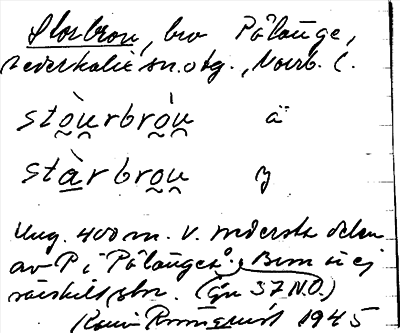 Storbron, bro Pålänge,
Nederkalix sn. o tg., Norrb. l.
stòu̯rbròu̯ ä
stàrbrou̯ y
Ung. 400 m. v. nedersta delen
av P i Pålänges. Bron är ej
särskilt stor. (Gk 37 N.O.)
1945